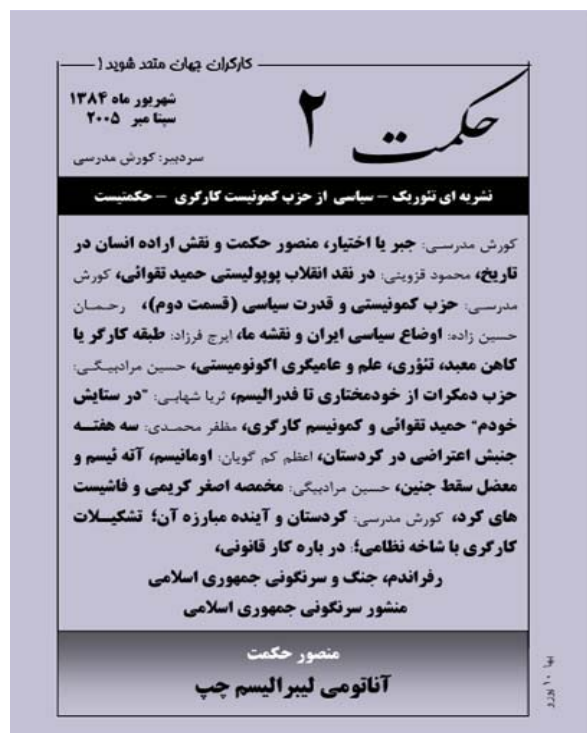 کارگران جهان متحد شوید !
حکمت ۲
شهریور ماه ۱۳۸۴
سپتا مبر ۲۰۰۵
سردبیر: کورش مدرسی
نشریه ای تئوریک – سیاسی از حزب کمونیست کارگری – حکمتیست
کورش مدرســی: جبر یا اختیار، منصور حکمت و نقش اراده انسان در
تاریخ، محمود قزوینی: در نقد انقلاب پوپولیستی حمید تقوائی، کورش
مدرسـی: حزب کمونیستی و قدرت سیاسی (قسمت دوم)، رحـمـان
حسین زاده: اوضاع سیاسی ایران و نقشه ما، ایرج فرزاد: طبقه کارگر یا
کاهن معبد، تئؤری، علم و عامیگری اکونومیستی، حسین مرادبیـگـی:
حزب دمکرات از خودمختاری تا فدرالیسم، ثریا شهابـی: "در ستایش
خودم" حمید تقوائی و کمونیسم کارگری، مظفر محمـدی: سه هفتــه
جنبش اعتراضی در کردستان، اعظم کم گویان: اومانیسم، آته ئیسم و
معضل سقط جنین، حسین مرادبیگی: مخمصه اصغر کریمی و فاشیست
های کرد، کورش مدرسی: کردستان و آینده مبارزه آن؛ تشکیــلات
کارگری با شاخه نظامی؛ در باره کار قانونی،
رفراندم، جنگ و سرنگونی جمهوری اسلامی
منشور سرنگونی جمهوری اسلامی
منصور حکمت
آناتومی لیبرالیسم چپ
بها ۱۰ یورو